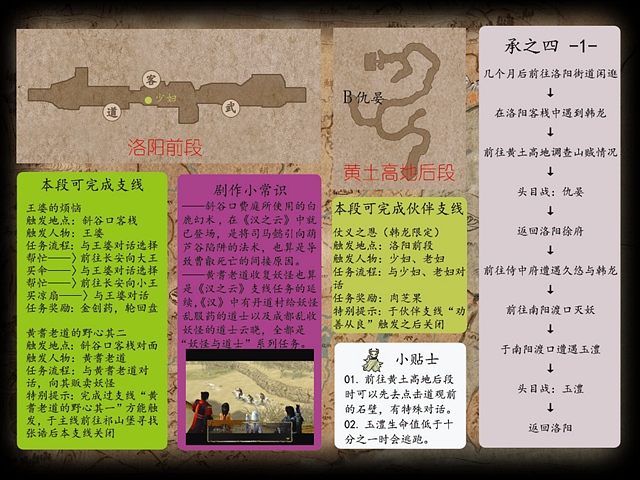 客
少妇
道
武
洛阳前段
B仇晏
黄土高地后段
本段可完成支线
王婆的烦恼
触发地点：斜谷口客栈
触发人物：王婆
任务流程：与王婆对话选择
帮忙——〉前往长安向大王
买伞——〉与王婆对话选择
帮忙——〉前往长安向小王
买凉扇——〉与王婆对话
任务奖励：金创药，轮回盘
黄耆老道的野心其二
触发地点：斜谷口客栈对面
触发人物：黄耆老道
任务流程：与黄耆老道对
话，向其贩卖妖怪
特别提示：完成过支线“黄
耆老道的野心其一”方能触
发，于主线前往祁山堡寻找
张诰后本支线关闭
剧作小常识
——斜谷口费庭所使用的白
鹿幻术，在《汉之云》中就
已登场，是将司马懿引向葫
芦谷陷阱的法术，也算是导
致曹叡死亡的间接原因。
——黄耆老道收复妖怪也算
是《汉之云》支线任务的延
续，《汉》中有开道村给妖怪
乱服药的道士以及成都乱收
妖怪的道士云晓，全都是
“妖怪与道士”系列任务。
本段可完成伙伴支线
仗义之恩（韩龙限定）
触发地点：洛阳前段
触发人物：少妇、老妇
任务流程：与少妇、老妇对
话
任务奖励：肉芝果
特别提示：于伙伴支线“劝
善从良”触发之后关闭
小贴士
01. 前往黄土高地后段
时可以先去点击道观前
的石壁，有特殊对话。
02. 玉澧生命值低于十
分之一时会逃跑。
承之四 -1-
几个月后前往洛阳街道闲逛
↓
在洛阳客栈中遇到韩龙
↓
前往黄土高地调查山贼情况
↓
头目战：仇晏
↓
返回洛阳徐府
↓
前往侍中府遭遇久悠与韩龙
↓
前往南阳渡口灭妖
↓
于南阳渡口遭遇玉澧
↓
头目战：玉澧
↓
返回洛阳